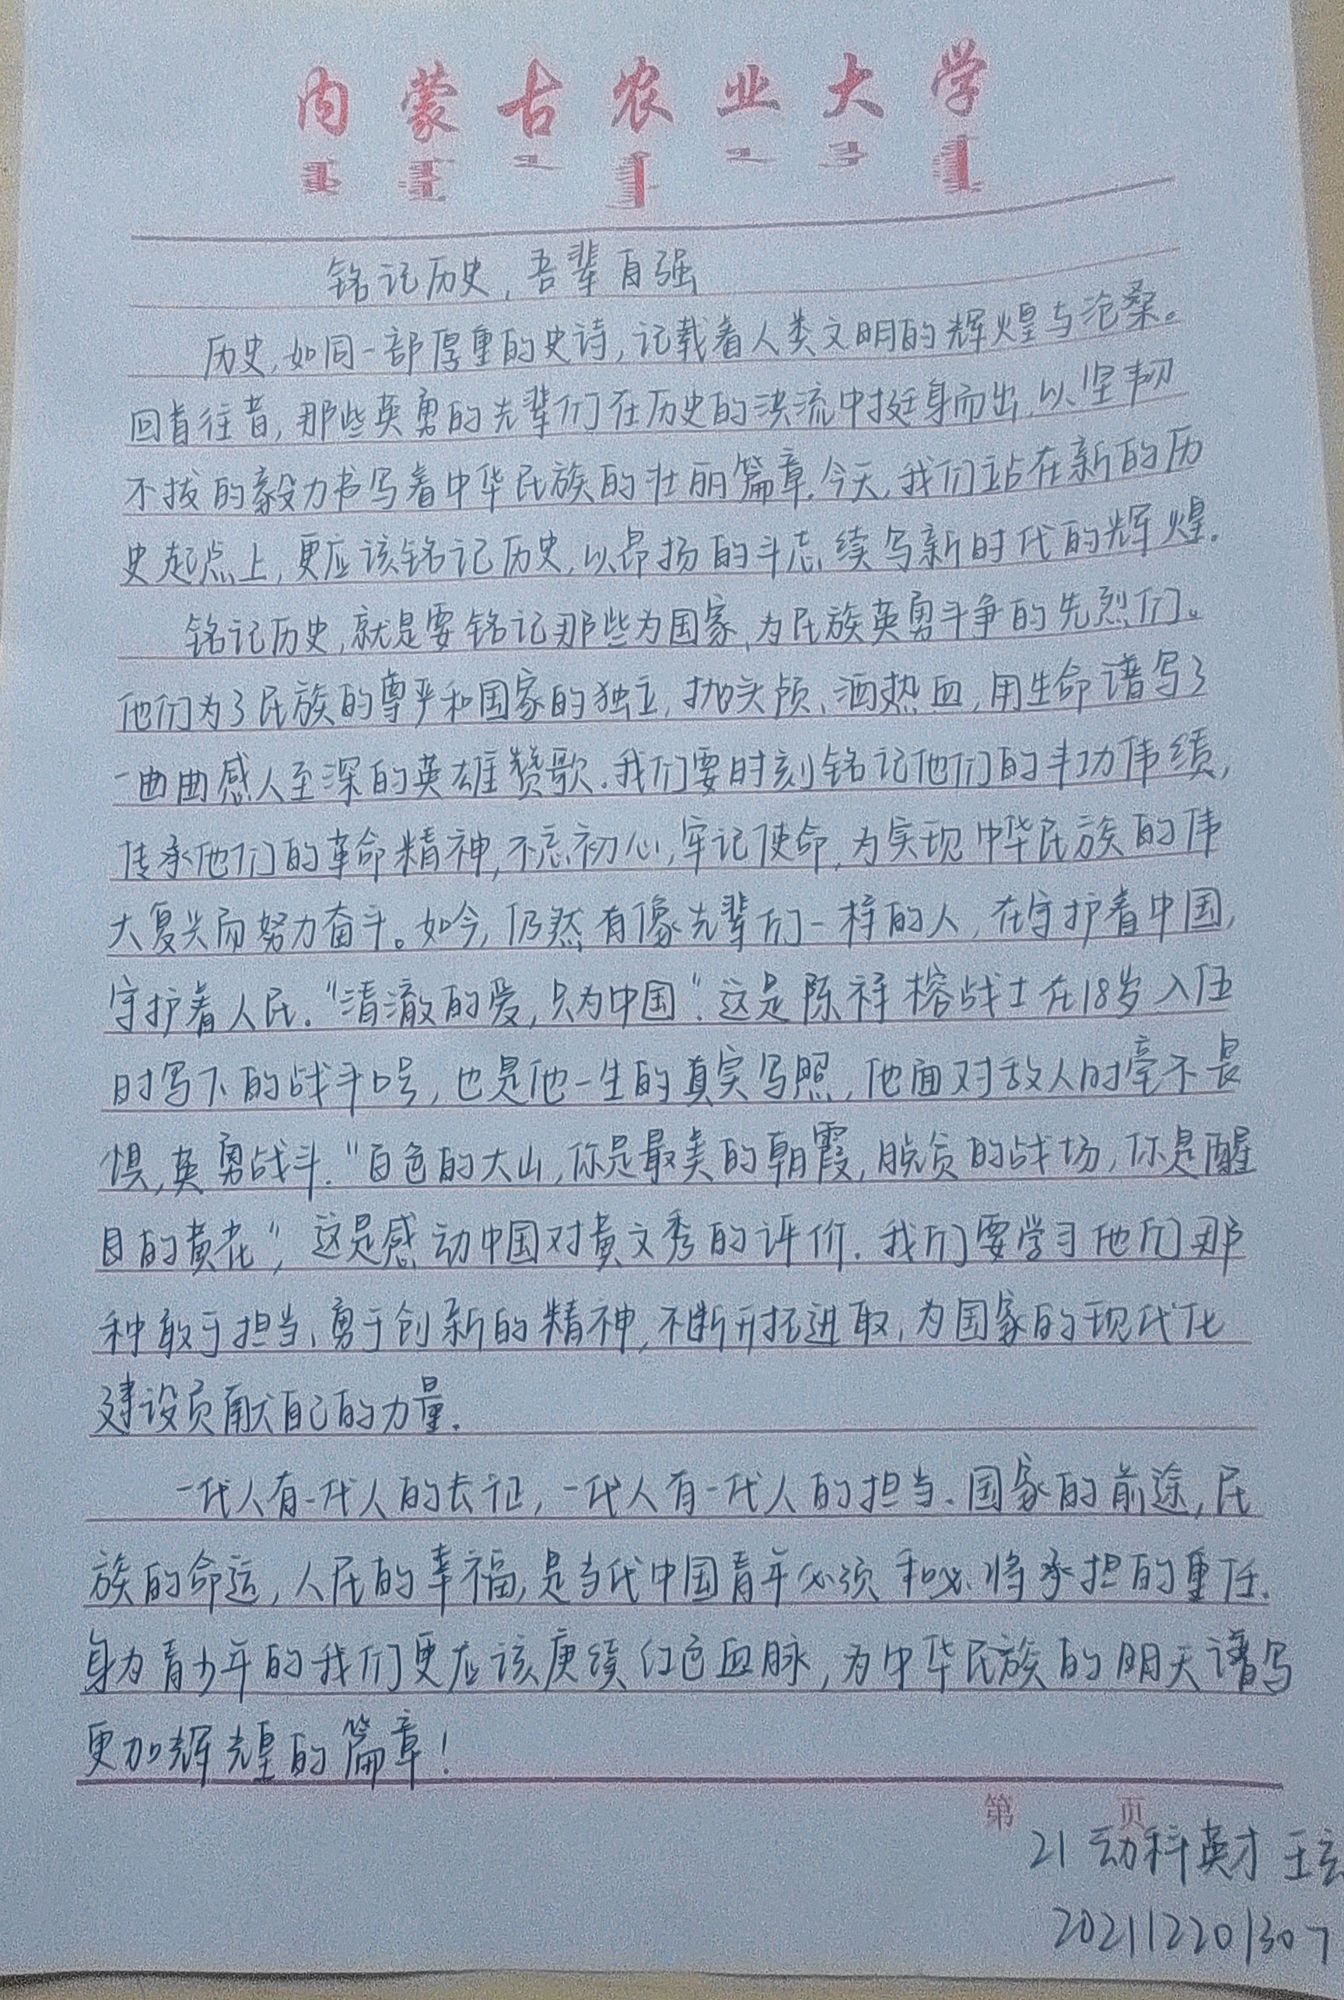 内蒙古农业大学
铭记历史,吾辈自强
历史,如同一部厚重的史诗,记载着人类文明的辉煌与沧桑。
回首往昔,那些英勇的先辈们在历史的洪流中挺身而出,以坚韧
不拔的毅力书写着中华民族的壮丽篇章.今天,我们站在新的历
史起点上,更应该铭记历史,以昂扬的斗志续写新时代的辉煌.
铭记历史,就是要铭记那些为国家,为民族英勇斗争的先烈们。
他们为了民族的尊严和国家的独立,抛头颅、洒热血,用生命谱写了
一曲曲感人至深的英雄赞歌.我们要时刻铭记他们的丰功伟绩,
传承他们的革命精神,不忘初心,牢记使命,为实现中华民族的伟
大复兴而努力奋斗。如今,仍然有像先辈们一样的人,在守护着中国,
守护着人民."清澈的爱,只为中国".这是陈祥榕战士在18岁入伍
时写下的战斗口号,也是他一生的真实写照,他面对敌人时毫不畏
惧,英勇战斗."百色的大山,你是最美的朝霞,脱贫的战场,你是醒
目的黄花",这是感动中国对黄文秀的评价.我们要学习他们那
种敢于担当、勇于创新的精神,不断开拓进取,为国家的现代化
建设贡献自己的力量.
一代人有一代人的长征,一代人有一代人的担当.国家的前途,民
族的命运,人民的幸福,是当代中国青年必须和必将承担的重任.
身为青少年的我们更应该赓续红色血脉,为中华民族的明天谱写
更加辉煌的篇章!
第 页
21动科英才 王
202112201307